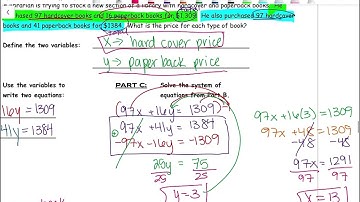 arian is trying to stock a new section of a library with hardcover and paperback books. He
hased 97 hardcover books and 16 paperback books for $1,309. He also purchased 97 hardcover
books and 41 paperback books for $1384. What is the price for each type of book?
Define the two variables:
x → hard cover price
y → paperback price
Use the variables to
write two equations:
PART C:
Solve the system of
equations from Part B.
16y = 1309
41y = 1384
(97x + 16y = 1309)
97x + 41y = 1384
-97x - 16y = -1309
25y = 75
25 25
y = 3
97x + 16(3) = 1309
97x + 48 = 1309
-48 -48
97x = 1291
97 97
x = 13